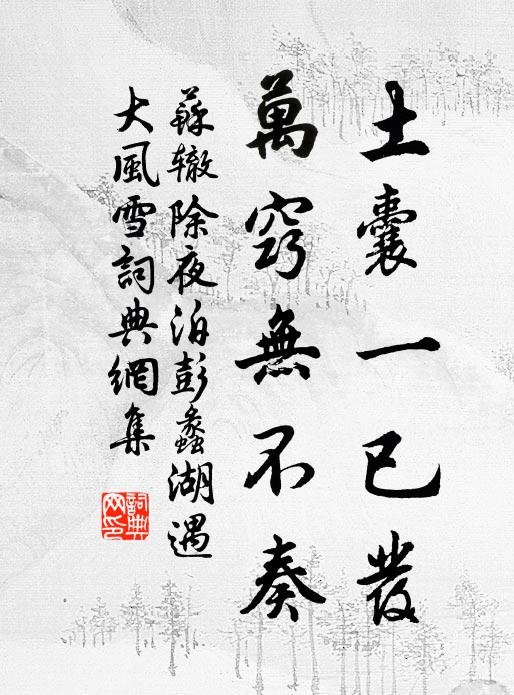 土囊一已發
萬竅無不奏
蘇辙除夜泊彭蠡湖遇
大風雪詞典網集
詞典
网印